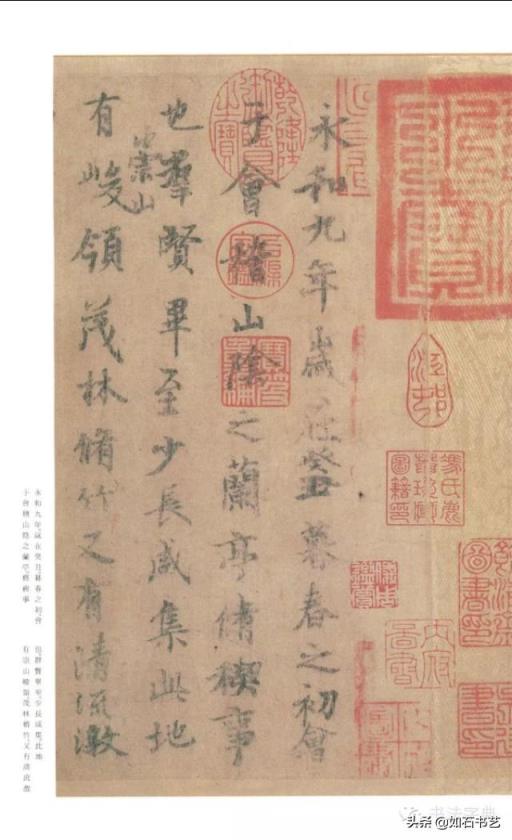 永和九年歲在癸丑暮春之初會
于會稽山陰之蘭亭脩稧事
也羣賢畢至少長咸集此地
有崇山峻領茂林脩竹又有清流激
永和九年歲在癸丑暮春之初會
于會稽山陰之蘭亭脩稧事
也群賢畢至少長咸集此地
有崇山峻領茂林脩竹又有清流激
书法字典
头条 @如石书艺